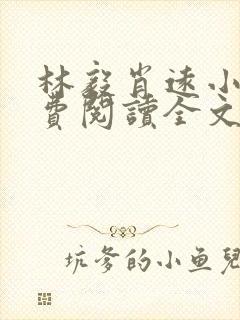 林毅肖遠小
費閱讀全文
坑爹的小鱼兒